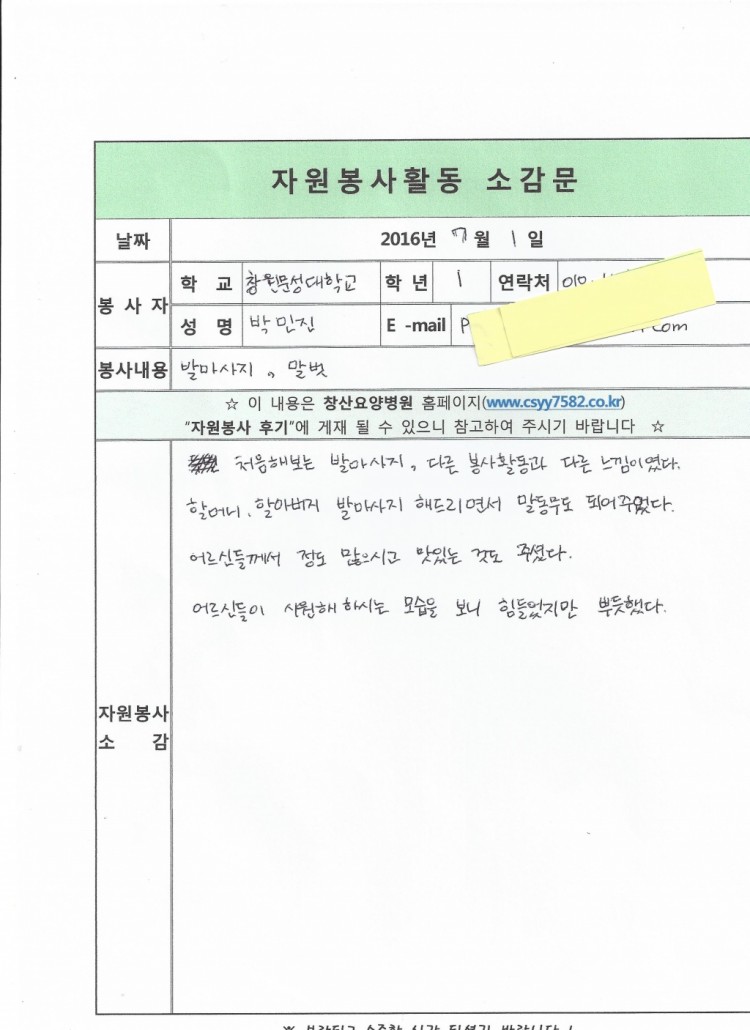 자원봉사활동 소감문
날짜 2016년 7월 1일
봉사자 학 교 창원문성대학교 학년 1 연락처 010
성 명 박민진 E-mail P com
봉사내용 발마사지, 말벗
☆ 이 내용은 창산요양병원 홈페이지(www.csyy7582.co.kr)
"자원봉사 후기"에 게재 될 수 있으니 참고하여 주시기 바랍니다 ☆
처음해보는 발마사지, 다른 봉사활동과 다른 느낌이였다.
할머니, 할아버지 발마사지 해드리면서 말동무도 되어주었다.
어르신들께서 정도 많으시고 맛있는 것도 주셨다.
어르신들이 시원해 하시는 모습을 보니 힘들었지만 뿌듯했다.
자원봉사
소 감